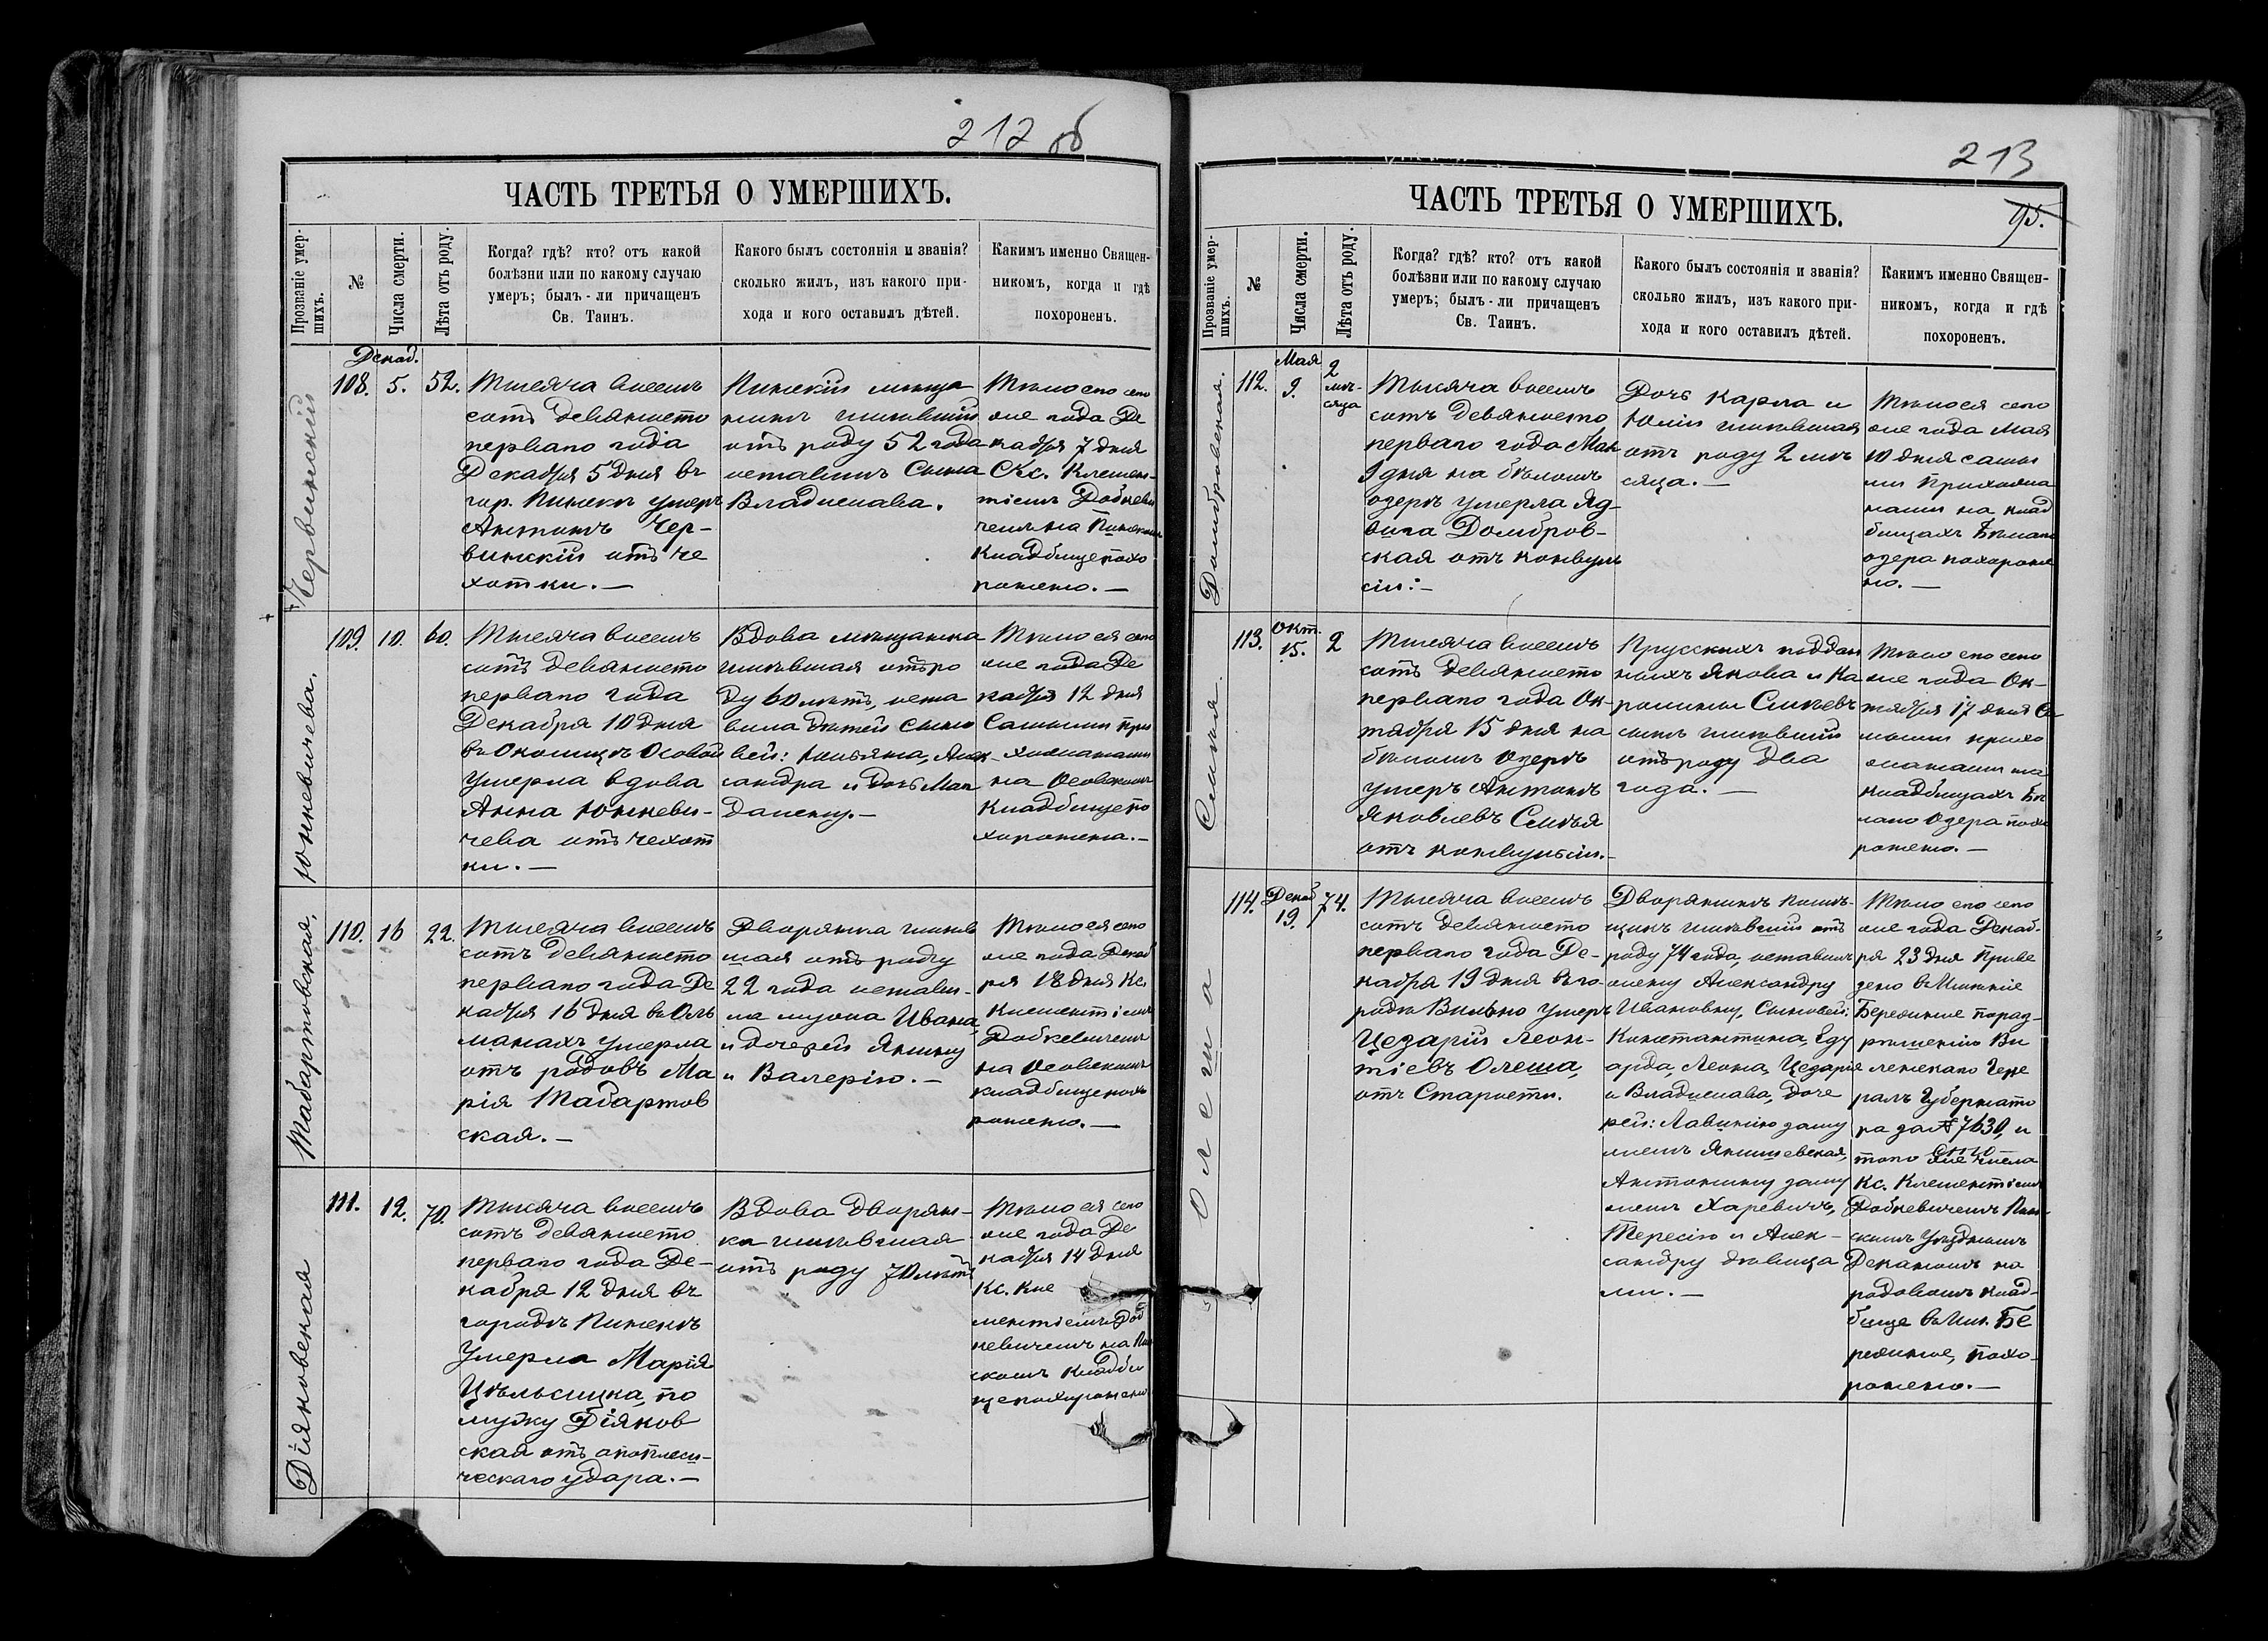 212 об
ЧАСТЬ ТРЕТЬЯ О УМЕРШИХЪ.
Прозваніе умер-
шихъ.
№
Числа смерти.
Лѣта отъ роду.
Когда? гдѣ? кто? отъ какой
болѣзни или по какому случаю
умеръ; былъ-ли причащенъ
Св. Таинъ.
Какого былъ состоянія и званія?
сколько жилъ, изъ какого при-
хода и кого оставилъ дѣтей.
Какимъ именно Священ-
никомъ, когда и гдѣ
похороненъ.
Червинскій
Декаб.
108. 5. 52.
Тысяча восемь
сотъ девяносто
перваго года
Декабря 5 дня въ
гор. Пинскѣ умеръ
Антонъ Чер-
винскій отъ че
хотки.—
Пинскій мѣща
нинъ жившій
отъ роду 52 года
оставилъ сына
Владислава.
Тѣло его сего
же года Де
кабря 7 дня
Кс. Климен-
тіемъ Добкеви
чемъ на Пинскомъ
кладбище похо
ронено.—
Юнкевичева.
109. 10. 60.
Тысяча восемь
сотъ девяносто
перваго года
Декабря 10 дня
въ Околицѣ Осовой
умерла вдова
Анна Юнкеви-
чева отъ чехот
ки.—
Вдова мѣщанка
жившая отъ ро
ду 60 лѣтъ, оста
вила дѣтей сыно
вей: Юльяна, Алек-
сандра и дочь Маг
далену.—
Тѣло ея сего
же года Де
кабря 12 дня
Самыми при
хожанами
на Осовскомъ
кладбище по
хоронена.—
Табартовская.
110. 16 22.
Тысяча восемь
сотъ девяносто
перваго года Де
кабря 16 дня въ Оль
манахъ умерла
отъ родовъ Ма
рія Табартов
ская.—
Дворянка жив
шая отъ роду
22 года остави-
ла мужа Ивана
и дочерей Янину
и Валерію.—
Тѣло ея сего
же года Декаб
ря 18 дня Кс.
Климентіемъ
Добкевичемъ
на Осовскомъ
кладбище похо
ронено.—
Діяковская
111. 12. 70.
Тысяча восемь
сотъ девяносто
перваго года Де-
кабря 12 дня въ
городѣ Пинскѣ
умерла Марія
по
мужу Діяков
ская отъ апоплеси-
ческаго удара.—
Вдова дворян-
ка жившая
отъ роду 70 лѣтъ
Тѣло ея сего
же года Де
кабря 14 дня
Кс. Кле
ментіемъ Доб
кевичемъ на Пин
скомъ кладби
ще похоронено
213
95.
ЧАСТЬ ТРЕТЬЯ О УМЕРШИХЪ.
Прозваніе умер-
шихъ.
№
Числа смерти.
Лѣта отъ роду.
Когда? гдѣ? кто? отъ какой
болѣзни или по какому случаю
умеръ; былъ-ли причащенъ
Св. Таинъ.
Какого былъ состоянія и званія?
сколько жилъ, изъ какого при-
хода и кого оставилъ дѣтей.
Какимъ именно Священ-
никомъ, когда и гдѣ
похороненъ.
Домбровская.
112. Мая 9. 2 мѣ-
сяца
Тысяча восемь
сотъ девяносто
перваго года Мая
9 дня на бѣломъ
озерѣ умерла Яд-
вига Домбров-
ская отъ конвуль
сіи:—
Дочь Карла и
Юліи жившая
отъ роду 2 мѣ
сяца.—
Тѣло ея сего
же года Мая
10 дня самы
ми прихожа
нами на клад
бищахъ Бѣлаго
озера похороне
но.—
113. Окт. 15. 2
Тысяча восемь
сотъ девяносто
перваго года Ок-
тября 15 дня на
бѣломъ озерѣ
умеръ Антонъ
Яковлевъ
отъ конвульсіи.—
Прусскихъ поддан
ныхъ Якова и Ка
ролины
сынъ жившій
отъ роду два
года.—
Тѣло его сего
же года Ок-
тября 17 дня Са
мыми прихо
жанами на
кладбищахъ Бѣ
лаго озера похо
ронено.—
Олеша
114. Декаб 19. 74.
Тысяча восемь
сотъ девяносто
перваго года Де-
кабря 19 дня въ го-
родѣ Вильно умеръ
Цезарій Леон-
тіевъ Олеша,
отъ старости.
Дворянинъ помѣ-
щикъ жившій отъ
роду 74 года, оставилъ
жену Александру
Ивановну, Сыновей:
Константина, Еду
арда, Леона, Цезарія
и Владислава, доче
рей: Лавинію заму
жемъ Янишевская,
Антонину заму
жемъ Харевичъ,
Тересію и Алек-
сандру дѣвица
ми.—
Тѣло его сего
же года Декаб-
ря 23 дня Приве
дено въ Имѣніе
Бережное по раз-
рѣшенію Ви
ленскаго Гене
ралъ Губернато
ра за № 7630, и
того же числа
Кс. Климентіемъ
Добкевичемъ Пин-
скимъ Уѣзднымъ
Деканомъ на
родовомъ клад-
бище въ Им. Бе
режное, похо-
ронено.—